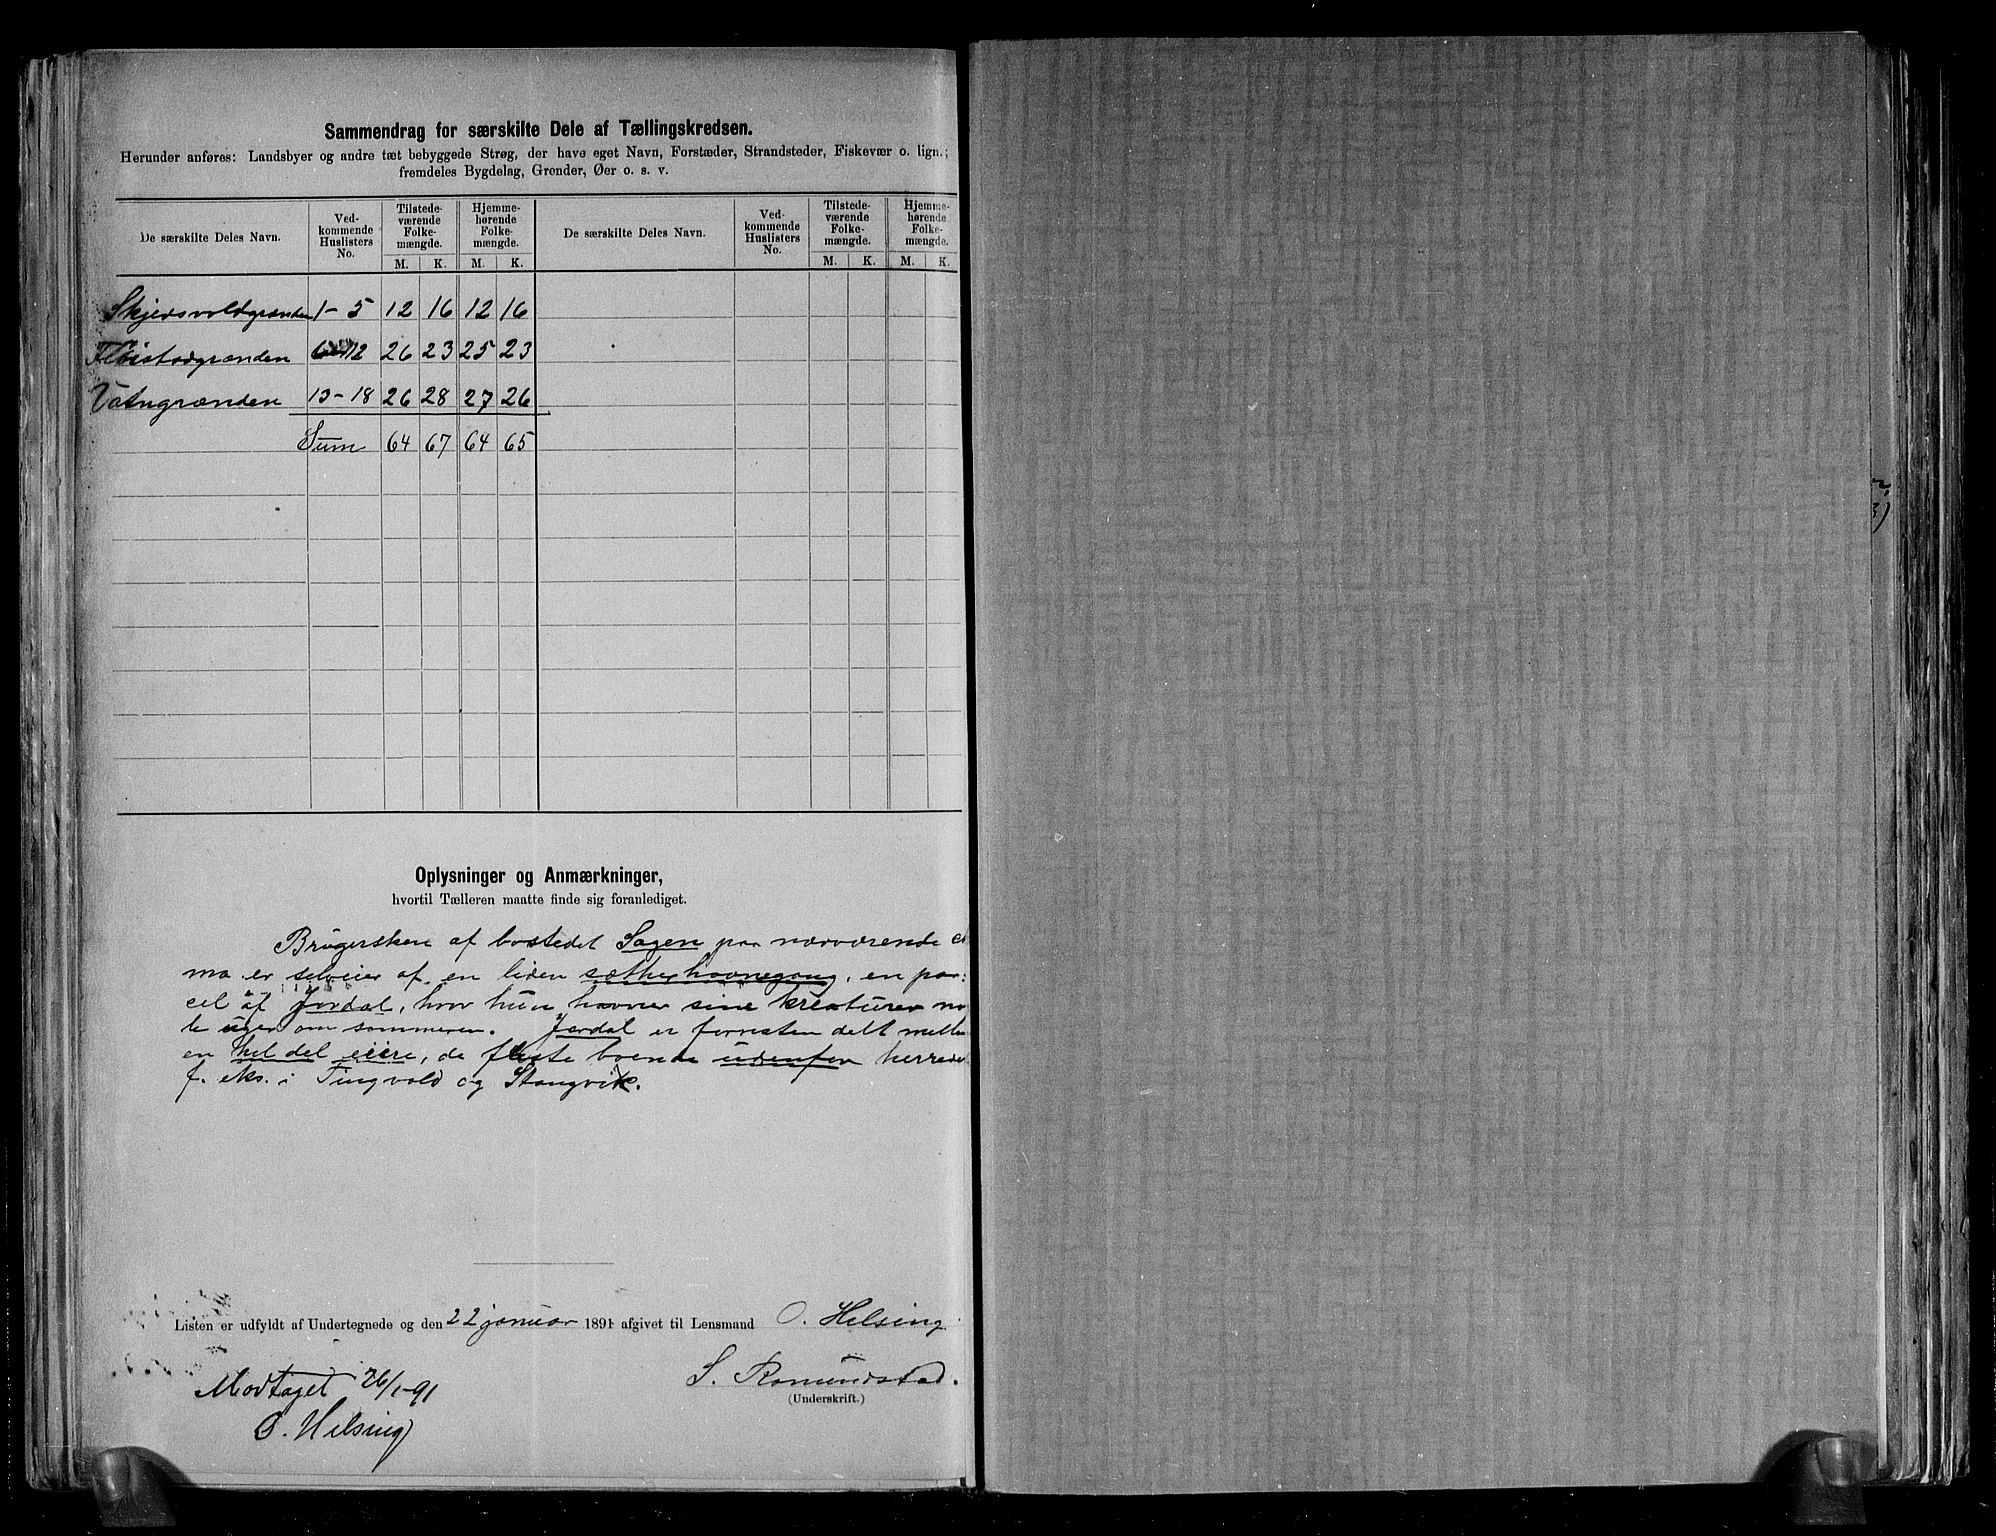 Sammendrag for særskilte Dele af Tællingskredsen.
Herunder anføres: Landsbyer og andre tæt bebyggede Strøg, der have eget Navn, Forstæder, Strandsteder, Fiskevær o. lign.;
fremdeles Bygdelag, Grender, Øer o. s. v.
De særskilte Deles Navn. Ved-kommende Huslisters No. Tilstede-værende Folke-mængde. Hjemme-hørende Folke-mængde. De særskilte Deles Navn. Ved-kommende Huslisters No. Tilstede-værende Folke-mængde. Hjemme-hørende Folke-mængde.
M. K. M. K. M. K. M. K.
Skjedsvoldgrænden 1-5 12 16 12 16
Fløistadgrænden 6-12 26 23 25 23
Vatngrænden 13-18 26 28 27 26
Sum 64 67 64 65
Oplysninger og Anmærkninger,
hvortil Tælleren maatte finde sig foranlediget.
Brugersken af bostedet Sagen paa nærværende
ma er selveier af en liden sætherhavnegang, en par-
cel af Jordal, hvor hun havner sine kreaturer no
le uger om sommeren. Jordal er forresten delt mell
en hel del eiere, de fleste boende udenfor herrede
f. eks. i Tingvold og Stangvik.
Listen er udfyldt af Undertegnede og den 22 januar 1891 afgivet til Lensmand O. Helsing
S. Romundstad.
(Underskrift.)
Modtaget 26/1-91
O. Helsing